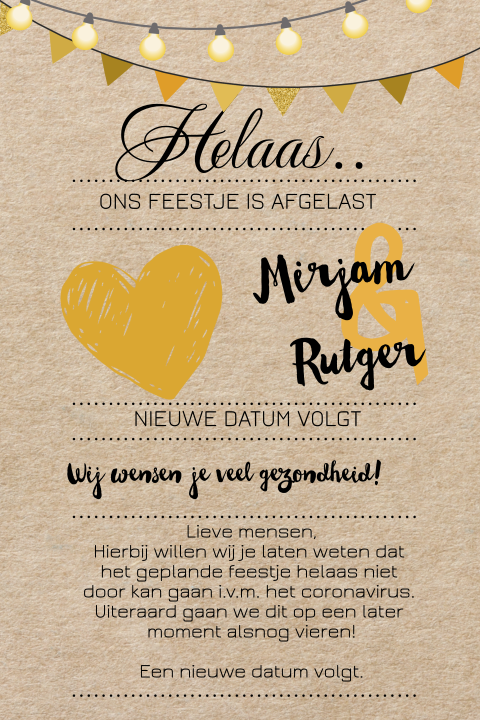 Helaas..
ONS FEESTJE IS AFGELAST
Mirjam
&
Rutger
NIEUWE DATUM VOLGT
Wij wensen je veel gezondheid!
Lieve mensen,
Hierbij willen wij je laten weten dat
het geplande feestje helaas niet
door kan gaan i.v.m. het coronavirus.
Uiteraard gaan we dit op een later
moment alsnog vieren!
Een nieuwe datum volgt.